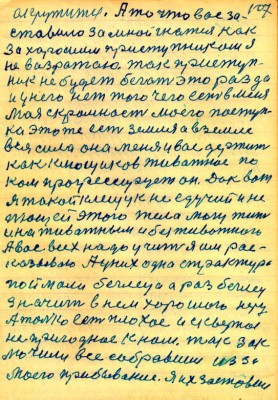 А то что вас за-
ставило за мной гнатся как
за хорошим приступником я
не возражаю. так приступ-
ник не будет бегат это раз да
и у него нет того чего ест в меня
Моя скромност моего поступ-
ка это те ест земля а в земле
вся сила она меня и вас держит
как животное по
ком прогрессирует он. Дак вот
Я такой не едучий и не
пющей этого тела могу жит
и на животным и без животного
А вас всех надо учит я им рас-
казиваю А у них одна структура
поймали беглеца а раз беглец
значит в нем хорошого нету
А толко ест плохое и
не пригодное к нам. так зак
мочили все собравши из за
Моего прибывание. Я их заставши